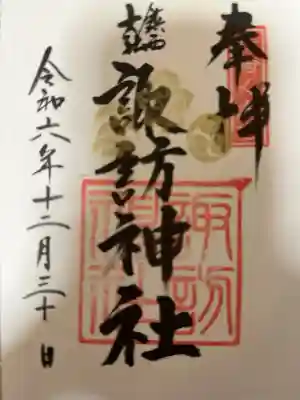 奉拝
鎮西大社
諏訪神社
諏訪神社
令和六年十二月三十日